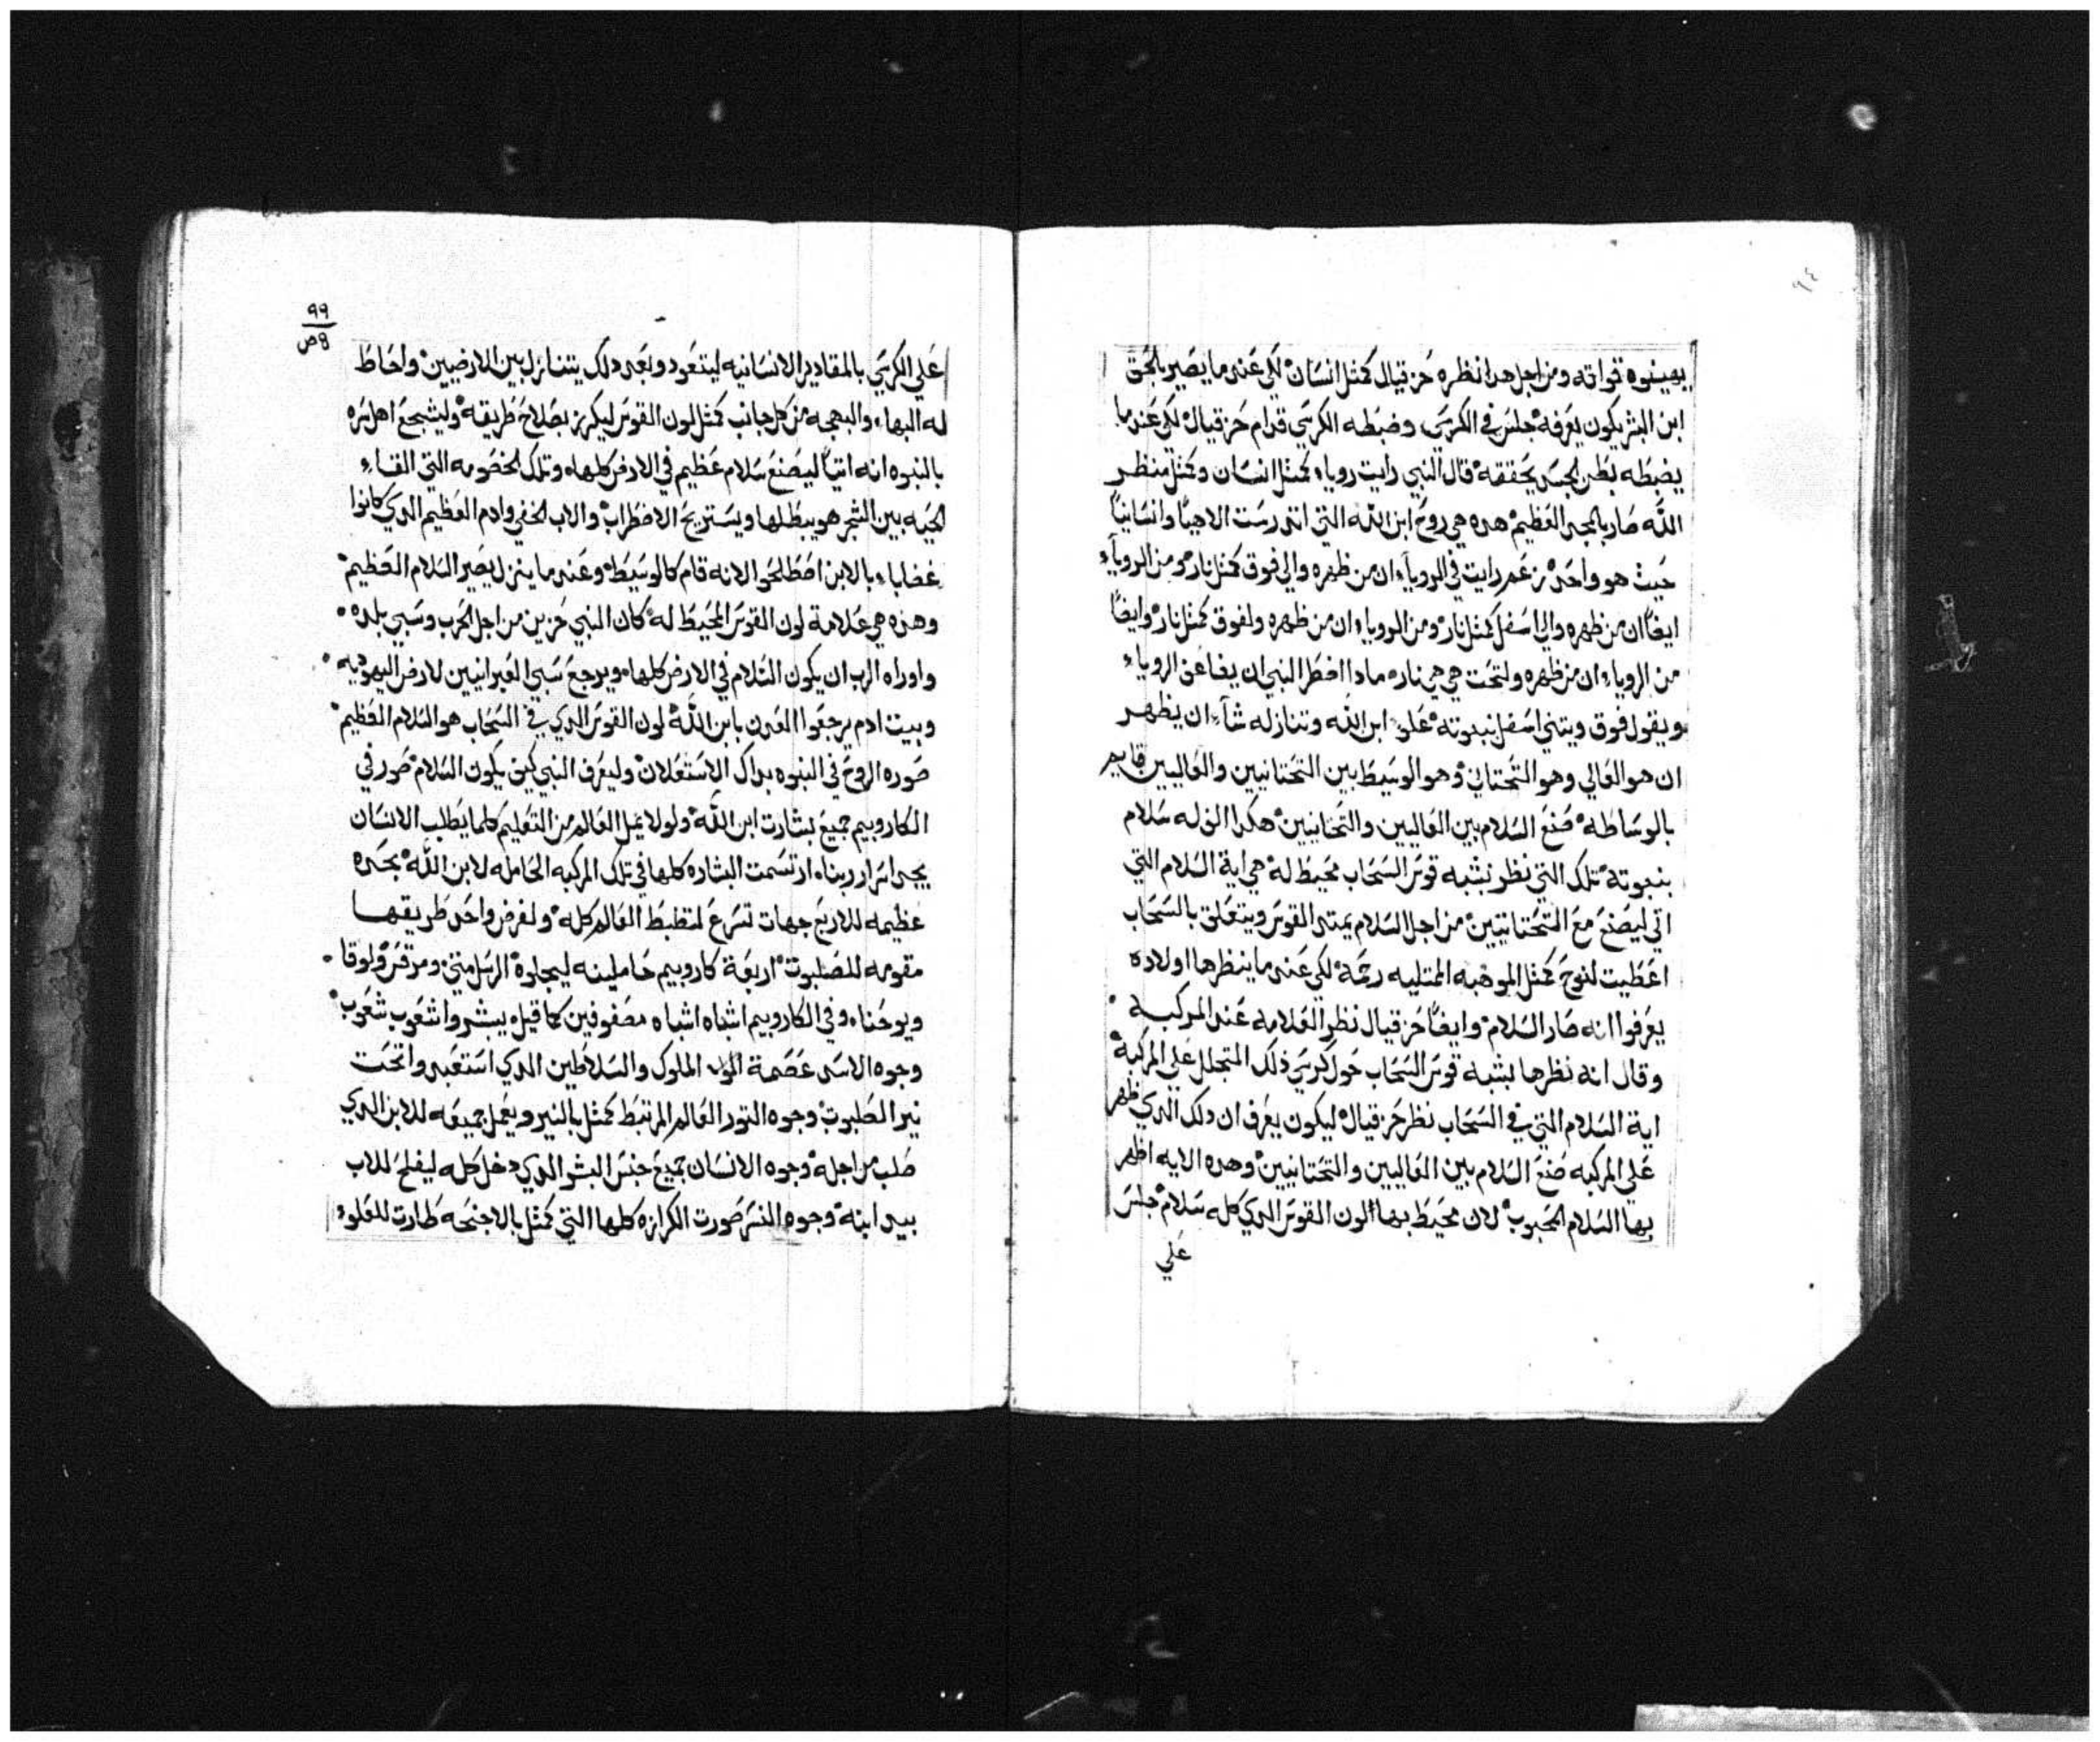 بعينوه تواته ومن اجل هدا نظره حزقيال كمثل انسان لكي عندما يصير بالحق
ابن البشر يكون يعرفه جلس في الكرسي وضبطه الكرسي قدام حزقيال لكي عندما
يضبطه بطن الجسد يحققه قال النبي رايت رويا كمثل انسان وكمثل منظر
الله صار بالمجد العظيم هده هي روح ابن الله التي اندرست الاهيا وانسانيا
حيث هو واحد زعم رايت في الرويا ان من ظهره والي فوق كمثل نار ومن الرويا
ايضا ان من ظهره والي اسفل كمثل نار ومن الرويا ان من ظهره ولفوق كمثل نار وايضا
من الرويا ان من ظهره ولتحت هي هي نار مادا اضطر النبي ان يضاعف الرويا
ويقول فوق ويتني اسفل بنبوته علو ابن الله وتنازله شا ان يظهر
ان هو العالي وهو التحتاني وهو الوسيط بين التحتانيين والعاليين قايم
بالوساطه صنع السلام بين العاليين والتحتانيين هكدا الف له سلام
بنبوته تلك التي نظر بشبه قوس السحاب محيط له هي اية السلام التي
اتي ليصنع مع التحتانيين من اجل السلام يمتد القوس ويتعلق بالسحاب
اعطيت لنوح كمثل الموهبه الممتليه رحمة لكي عندما ينظرها اولاده
يعرفوا انه صار السلام وايضا حزقيال نظر العلامه عند المركبه
وقال انه نظرها بشبه قوس السحاب حول كرسي ذلك المتجلل علي المركبة
اية السلام التي في السحاب نظر حزقيال ليكون يعرف ان دلك الدي ظهر
علي المركبه صنع السلام بين العاليين والتحتانيين وهده الايه اظهر
بها السلام المحبوب لان محيط بها لون القوس الدي كله سلام جلس
علي
٩٩
8ص
علي الكرسي بالمقادير الانسانيه ليتعود وبعد دلك يتنازل بين الارضيين واحاط
له البهاء والبهجه من كل جانب كمثل لون القوس ليكرز بصلاح طريقه وليشجع اهل سره
بالنبوه انه اتيا ليصنع سلام عظيم في الارض كلها وتلك الخصومه التي القاء
الحيه بين الشجر هو يبطلها ويستريح الاضطراب والاب الخفي وادم العظيم الدي كانوا
غضابا بالابن اصطلحوا لانه قام كالوسيط وعندما ينزل يصير السلام العظيم
وهذه هي علامة لون القوس المحيط له كان النبي حزين من اجل الحرب وسبي بلده
واوراه الرب ان يكون السلام في الارض كلها ويرجع سبي العبرانيين لارض اليهوديه
وبيت ادم يرجعوا العدن بابن الله لون القوس الدي في السحاب هو السلام العظيم
صوره الروح في النبوه بداك الاستعلان وليعرف النبي كيف يكون السلام صور في
الكاروبيم جميع بشارت ابن الله ولولا يمل العالم من التعليم كلما يطلب الانسان
يجد اسرار ربنا ارتسمت البشاره كلها في تلك المركبه الحامله لابن الله بجده
عظيمه للاربع جهات تسرع لتظبط العالم كله ولغرض واحد طريقها
مقومه للصلبوت اربعة كاروبيم حاملينه ليجلوة الرسل متي ومرقس ولوقا
ويوحنا وفي الكاروبيم اشباه اشباه مصفوفين كما قيل يبشروا شعوب شعوب
وجوه الاسد عصمة الملوك والسلاطين الدي استعبدوا تحت
نير الصلبوت وجوه التور العالم المرتبط كمثل بالنير ويعمل جميعه للابن الدي
صلب من اجله وجوه الانسان جميع جنس البشر الدي دخل كله ليفلح للاب
بيد ابنه وجوه النسر صورت الكرازه كلها التي كمثل بالاجنحه طارت للعلو